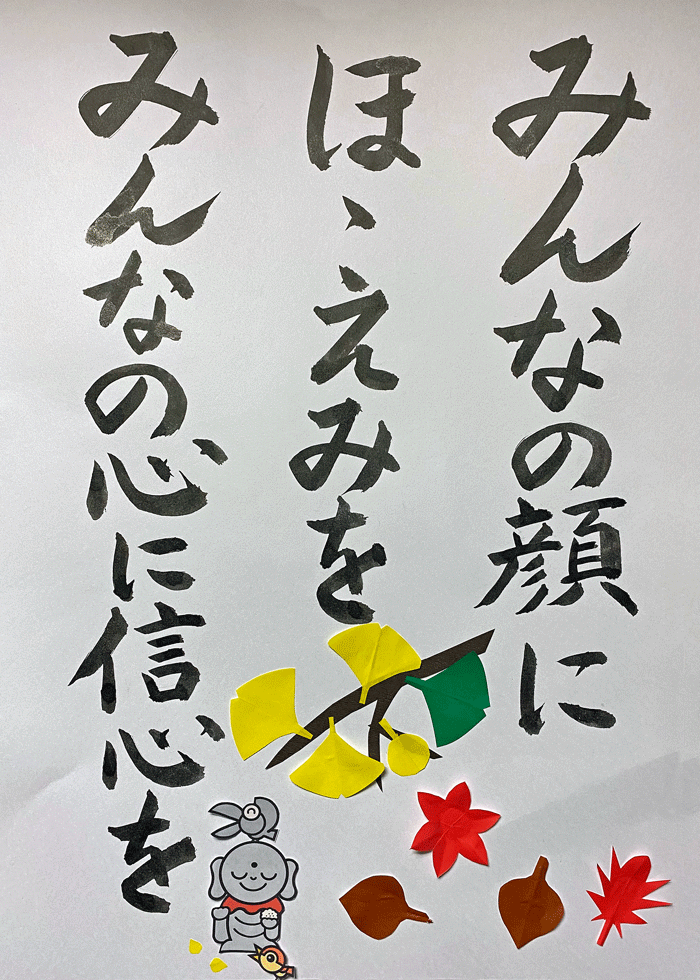 みんなの顔に
ほゝえみを
みんなの心に信心を